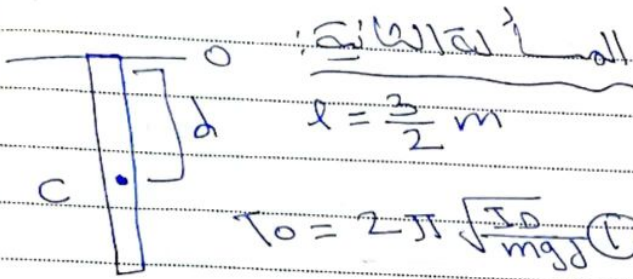 المسألة الثانية:
O
l = 3/2 m
d
C
T0 = 2π √(I0/mgd) ①